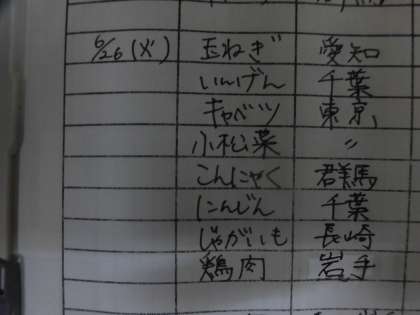 6/26(火) 玉ねぎ 愛知
いんげん 千葉
キャベツ 東京
小松菜 〃
こんにゃく 群馬
にんじん 千葉
じゃがいも 長崎
鶏肉 岩手